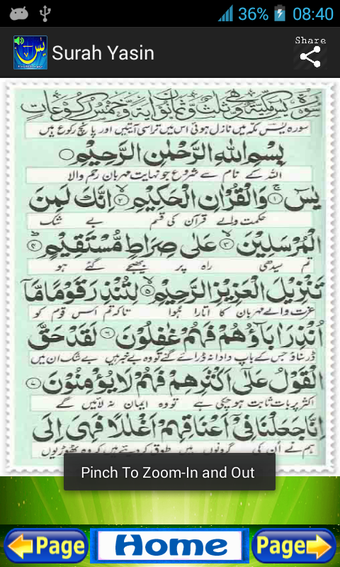 36% 08:40
يس
Surah Yasin
Share
سورة يس مكية وهي ثلاث وثمانون اية وخمس ركوعات
سورہ یٰسٓ مکہ میں نازل ہوئی اس میں تراسی آیتیں اور پانچ رکوع ہیں
بِسْمِ اللهِ الرَّحْمٰنِ الرَّحِيْمِ
اللہ کے نام سے شروع جو نہایت مہربان رحم والا
يٰسٓ ۝۱ وَالْقُرْاٰنِ الْحَكِيْمِ ۝۲ اِنَّكَ لَمِنَ
حکمت والے قرآن کی قسم بے شک
الْمُرْسَلِيْنَ ۝۳ عَلٰى صِرَاطٍ مُّسْتَقِيْمٍ ۝۴
تم سیدھی راہ پر بھیجے گئے ہو
تَنْزِيْلَ الْعَزِيْزِ الرَّحِيْمِ ۝۵ لِتُنْذِرَ قَوْمًا مَّآ
عزت والے مہربان کا اتارا ہوا تاکہ تم اس قوم کو
اُنْذِرَ اٰبَآؤُهُمْ فَهُمْ غٰفِلُوْنَ ۝۶ لَقَدْ حَقَّ
ڈر سناؤ جس کے باپ دادا نہ ڈرائے گئے تو وہ بے خبر ہیں بے شک ان میں
الْقَوْلُ عَلٰٓى اَكْثَرِهِمْ فَهُمْ لَا يُؤْمِنُوْنَ ۝۷
اکثر پر بات ثابت ہو چکی ہے تو وہ ایمان نہ لائیں گے
اِنَّا جَعَلْنَا فِيْٓ اَعْنَاقِهِمْ اَغْلٰلًا فَهِيَ اِلَى
ہم نے اُن کی گردنوں میں طوق کر دیے ہیں کہ وہ ٹھوڑیوں
Pinch To Zoom-In and Out
Page Home Page